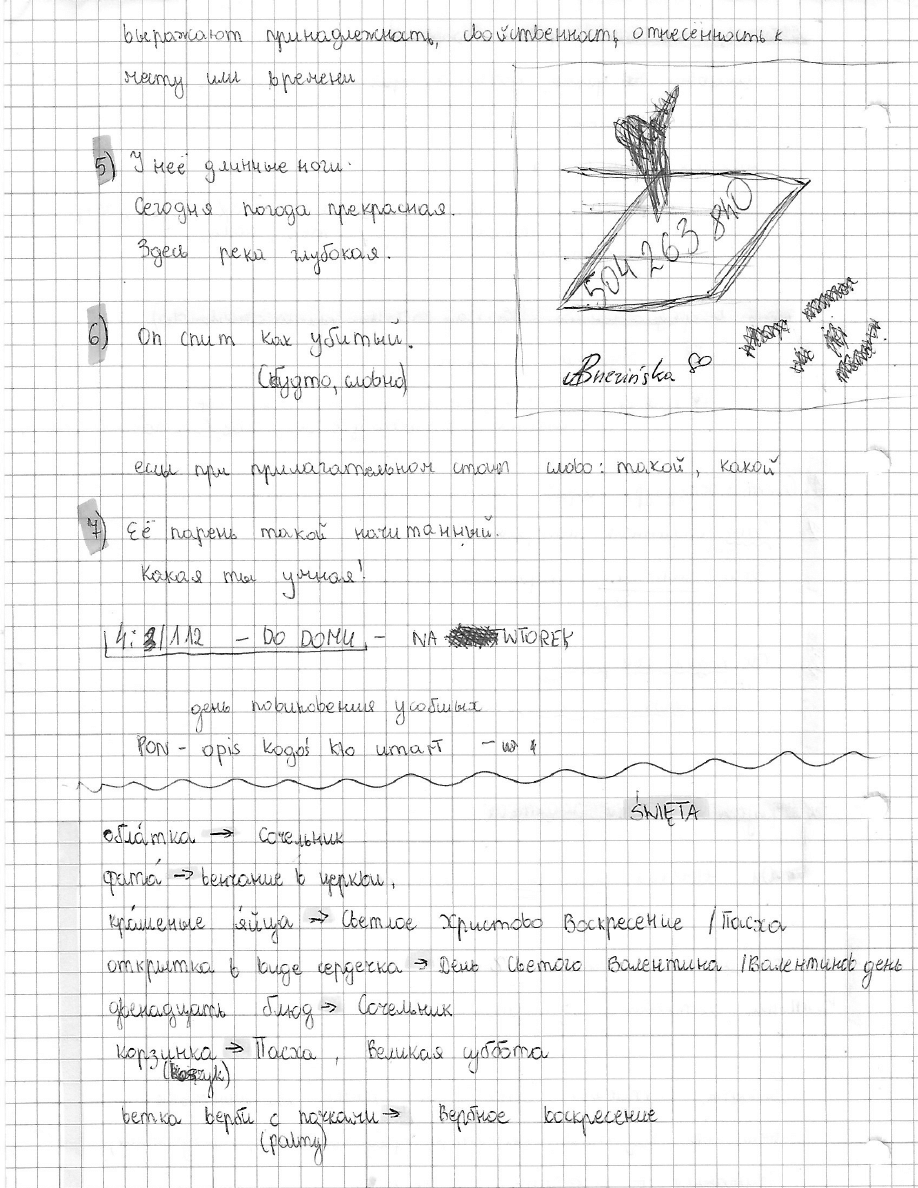 выражают принадлежность, свойственность, отнесённость к
месту или времени
5) У неё длинные ноги.
Сегодня погода прекрасная.
Здесь река глубокая.
504 263 840
6) Он спит как убитый.
(будто, словно)
если при прилагательном стоит слово: такой, какой
7) Её парень такой начитанный.
Какая ты умная!
4: 3/112 – DO DOMU – NA WTOREK
день повиновения усобших
PON – opis kogoś kto umarł
ŚWIĘTA
облáтка → Сочельник
фатá → венчание в церкви,
крáшеные яйца → Светлое Христово Воскресение / Пасха
открытка в виде сердечка → День Светого Валентина / Валентинов день
двенадцать блюд → Сочельник
корзинка → Пасха, Великая суббота
(koszyk)
ветка верби с почками → Вербное воскресение
(palmy)